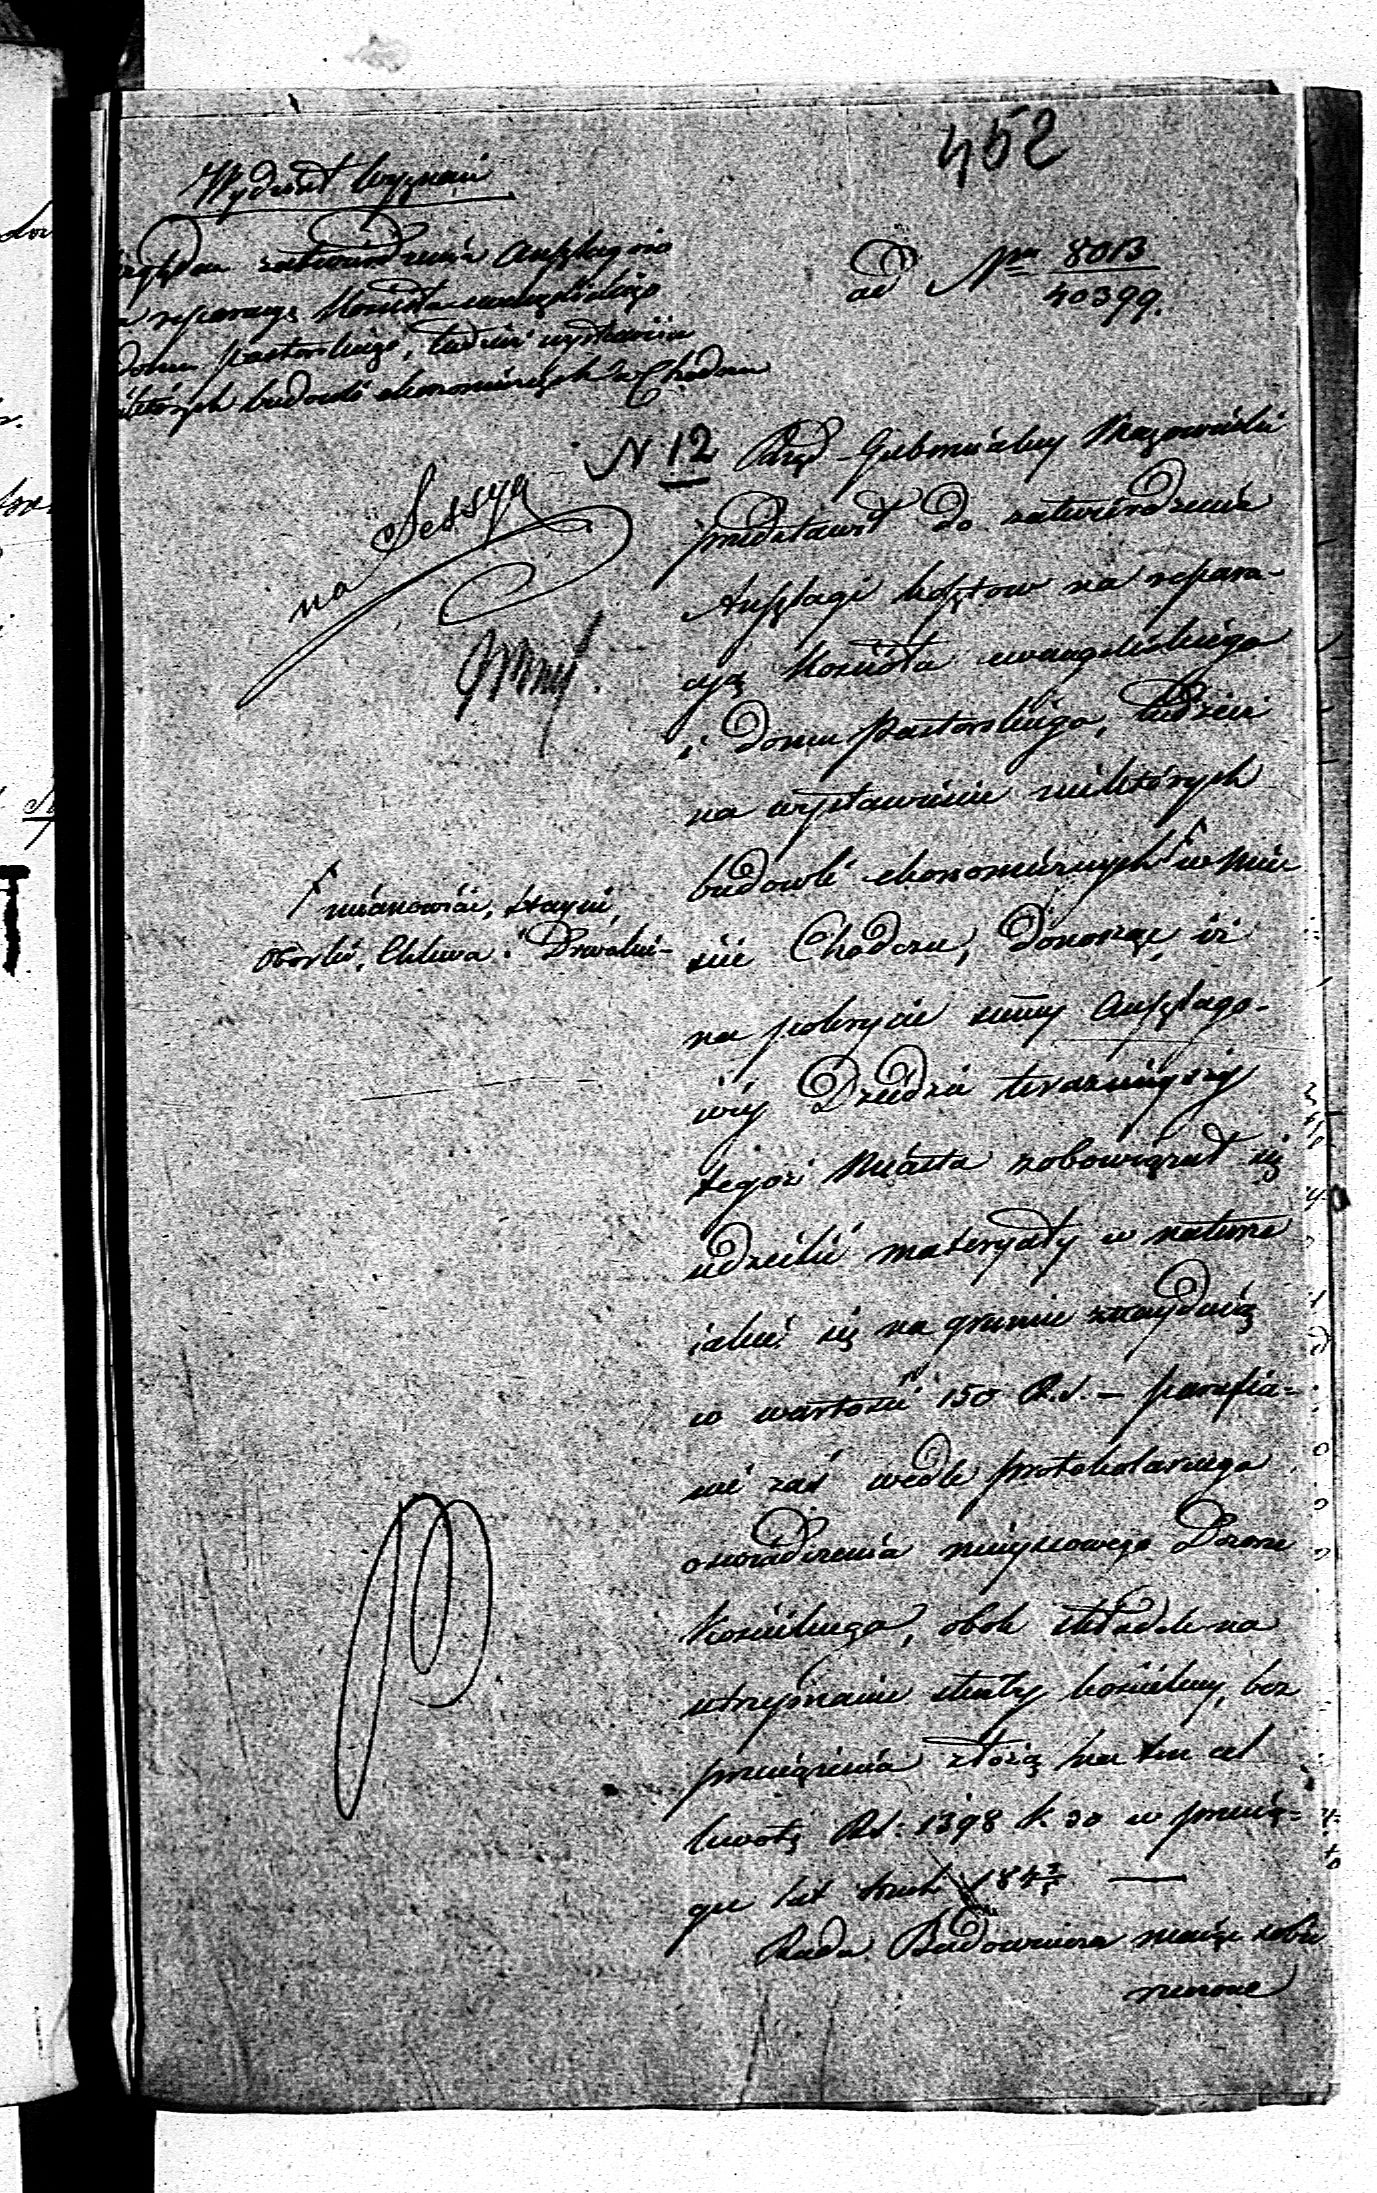 452
Wydział Wyznań
względem zatwierdzenia Anszlagów
na reperacyę Kościoła ewangelickiego
domu Pastorskiego, tudzież wystawienia
niektórych budowli ekonomicznych w Chodczu
ad Nra 8013
40399.
na Sessyą
N 12 Rząd Gubernialny Mazowiecki
przedstawił do zatwierdzenia
Anszlagi kosztow na repara-
cyą Kościoła ewangelickiego
i domu Pastorskiego, tudzież
na wystawienie niektórych
budowli ekonomicznych w Mie-
ście Chodczu, donosząc, iż
na pokrycie summy Anszlago-
wéy Dziedzic teraznieyszy
tegoż Miasta zobowiązał się
udzielić materyały w naturze
jakie się na gruncie znayduią
w wartości 150 R.S. – parafia-
nie zaś wedle protokolarnego
oswiadczenia mieyscowego Dozoru
Kościelnego, obok składek na
utrzymanie służby kościelney, bez
przeciążenia złożą na ten cel
kwotę RS: 1398 k. 30 w przecią-
gu lat trzech 184
Rada Budownicza maiąc sobie
znoszone
mianowicie, Stayni,
Oborki, Chlewa i Drwalni-